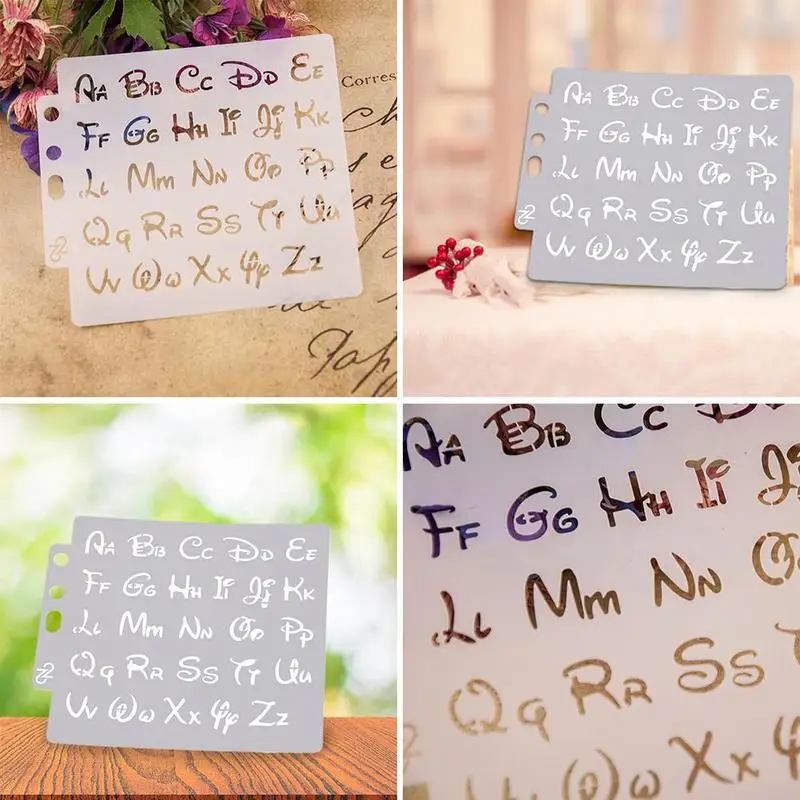 Aa Bb Cc Dd Ee
Corres
Ff Gg Hh Ii Jj Kk
Ll Mm Nn Oo Pp
Qq Rr Ss Tt Uu
Vv Ww Xx Yy Zz
Aa Bb Cc Dd Ee
Ff Gg Hh Ii Jj Kk
Ll Mm Nn Oo Pp
Qq Rr Ss Tt Uu
Vv Ww Xx Yy Zz
Aa Bb Cc Dd Ee
Ff Gg Hh Ii Jj Kk
Ll Mm Nn Oo Pp
Qq Rr Ss Tt Uu
Vv Ww Xx Yy Zz
Aa Bb Cc D
Ff Gg Hh Ii J
Ll Mm Nn O
Qq Rr Ss
Ww Xx